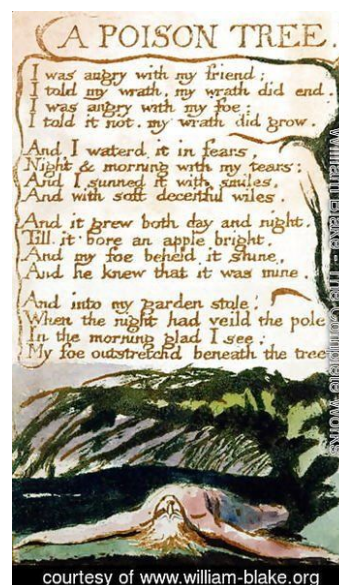 A POISON TREE.
I was angry with my friend;
I told my wrath, my wrath did end.
I was angry with my foe:
I told it not. my wrath did grow.
And I waterd it in fears,
Night & morning with my tears:
And I sunned it with smiles,
And with soft deceitful wiles.
And it grew both day and night.
Till it bore an apple bright.
And my foe beheld it shine,
And he knew that it was mine.
And into my garden stole;
When the night had veild the pole
In the morning glad I see;
My foe outstretchd beneath the tree
William Blake - The Complete Works
courtesy of www.william-blake.org